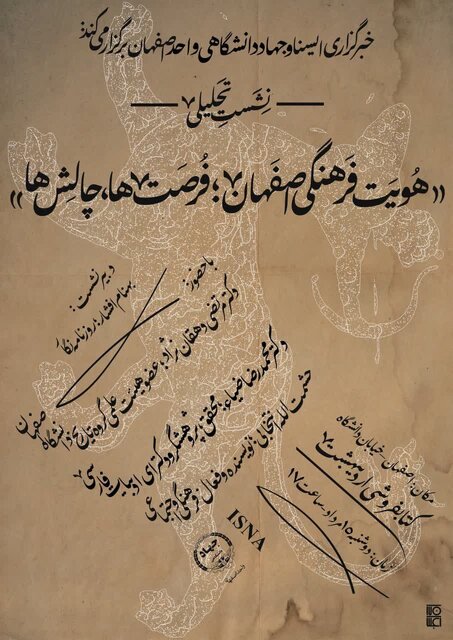 خبرگزاری ایسنا و جهاد دانشگاهی واحد اصفهان برگزار می‌کند:
نشست تحلیلی
«هویت فرهنگی اصفهان؛ فرصت‌ها، چالش‌ها»
دبیر نشست:
بهنام افشار؛ روزنامه‌نگار
با حضور:
دکتر مرتضی دهقان نژاد؛ عضو هیئت علمی گروه تاریخ دانشگاه اصفهان
دکتر محمدرضا ضیاء؛ محقق، پژوهشگر و دکترای ادبیات فارسی
حشمت‌الله انتخابی؛ نویسنده و فعال فرهنگی و اجتماعی
مکان: اصفهان، خیابان دانشگاه
کتابفروشی اردیبهشت
زمان: دوشنبه ۱۵ مرداد، ساعت ۱۷
ISNA
جهاد